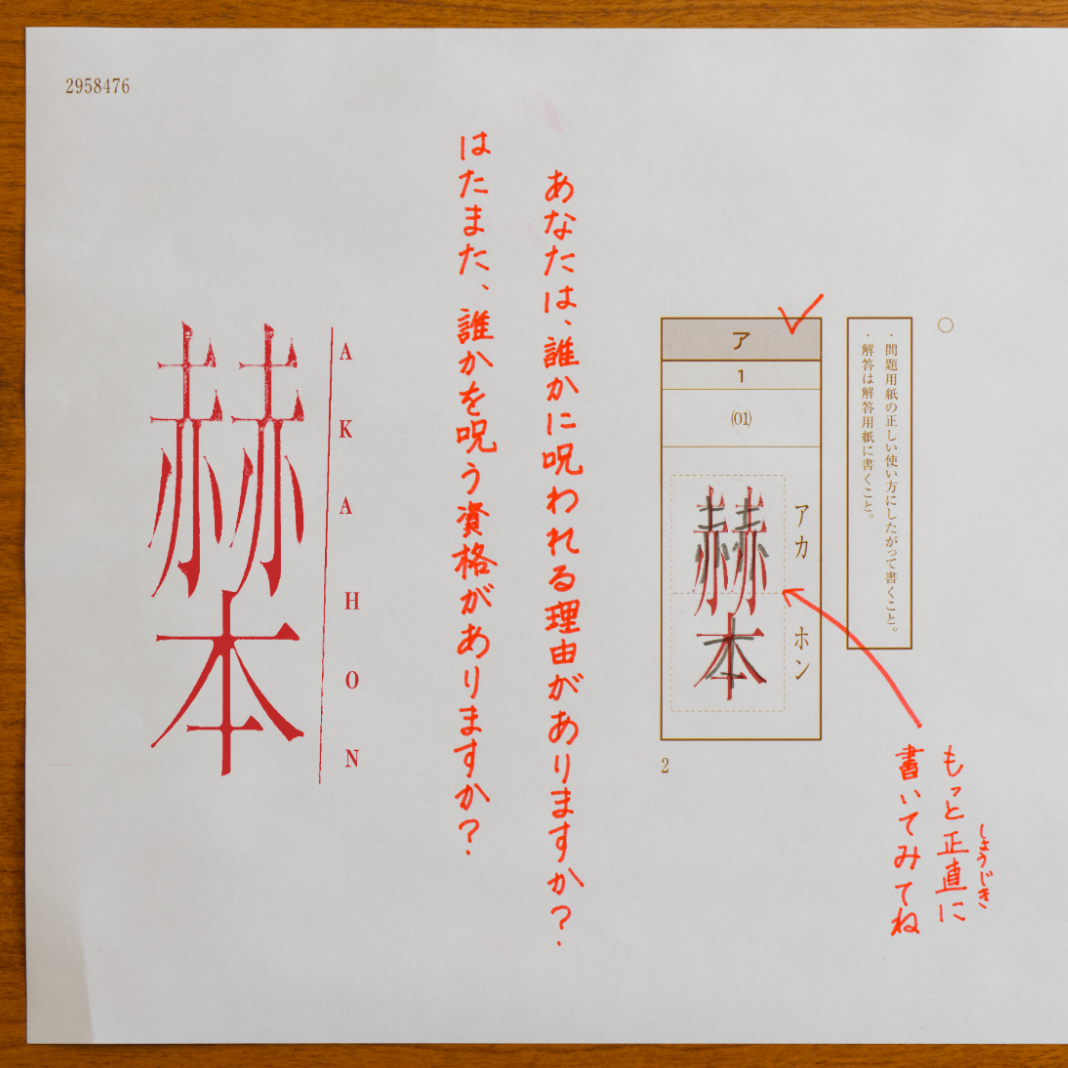 2958476
○
・問題用紙の正しい使い方にしたがって書くこと。
・解答は解答用紙に書くこと。
ア
1
(01)
アカ ホン
赫本
2
もっと正直に
しょうじき
書いてみてね
あなたは、誰かに呪われる理由がありますか?
はたまた、誰かを呪う資格がありますか?
AKAHON
赫本